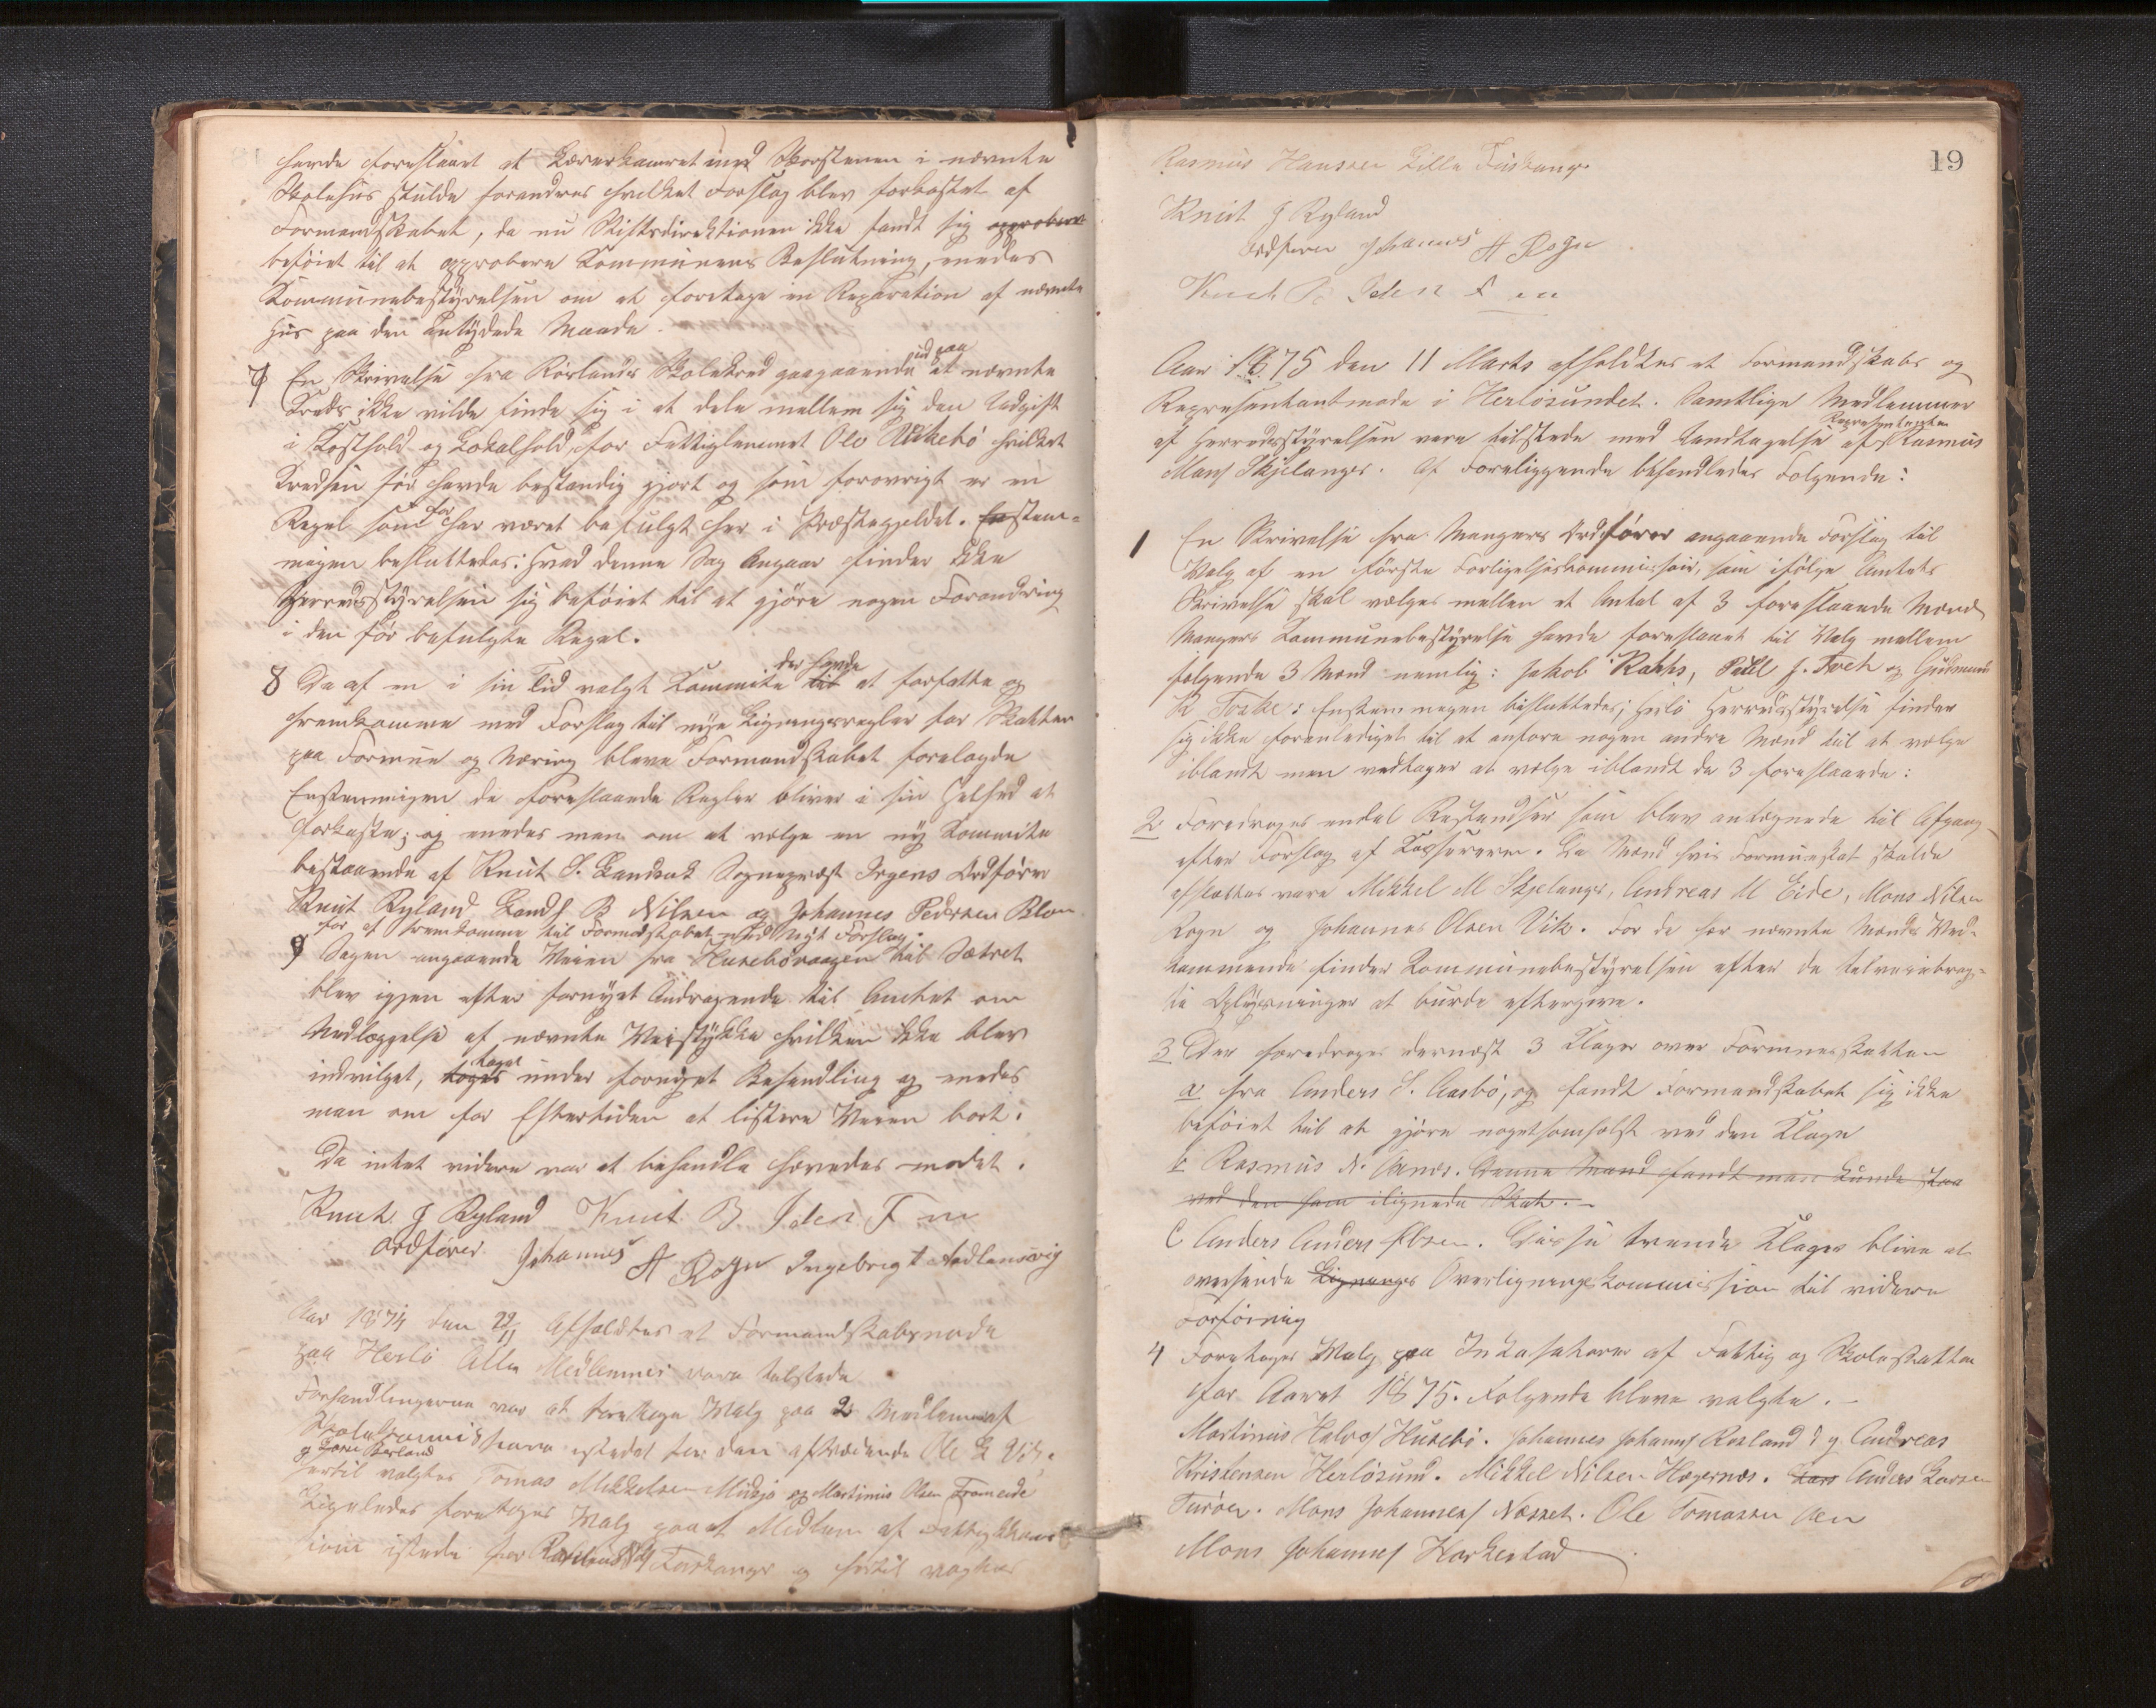 havde foreslaaet at Lærerkamret med Skorstenen i nævnte
Skolehus skulde forandres hvilket Forslag blev forkastet af
Formandskabet, da nu Stiftsdirektionen ikke fandt sig approbere
beföiet til at approbere Kommunens Beslutning, enedes
Kommunebestÿrelsen om at foretage en Reparation af nævnte
Hus paa den antÿdede Maade.
7 En Skrivelse fra Rörlands Skolekred gaaende ud paa at nævnte
Kreds ikke vilde finde sig i at dele mellem sig den Udgift
i Kosthold og Lokalhold, for Fattiglemmet Ole hvilket
Kredsen för havde bestandig gjort og som forövrigt er en
Regel som för har været befulgt her i Præstegjeldet. Enstem-
migen besluttedes: Hvad denne Sag Angaar finder ikke
Herredsstÿrelsen sig beföiet til at gjöre nogen Forandring
i den för befulgte Regel.
8 Da af en i sin Tid valgt Kommite til der havde at forfatte og
fremkomme med Forslag til nÿe Ligningsregler for Skatter
paa Formue og Næring bleve Formandskabet forelagde
Enstemmigen de foreslaaede Regler bliver i sin Helhed at
forkaste; og enedes man om at vælge en nÿ Kommite
bestaaende af Knut S. Landvik Sognepræst Irgens Ordförer
Knut Ryland Lands B Nilsen og Johannes Pedersen Blom
for at fremkomme til Formandskabet med Nÿt Forslag.
9 Sagen angaaende Veien fra Husebövaagen til Sætret
blev igjen efter fornÿet Andragende til Amtet om
Nedlæggelse af nævnte Veistÿkke hvilken ikke blev
indvilget, toges taget under fornÿet Behandling og enedes
man om for Eftertiden at listere Veien bort.
Da intet videre var at behandle hævedes mödet.
Knut J Ryland Knut B Iden F m
Ordförer Johannes A Rogn Ingebregt Aadlansvig
Aar 1874 den 22/11 Afholdtes et Formandskabsmöde
paa Herlö Alle Medlemmer vare tilstede
Forhandlingerne var at foretage Valg paa 2 Medlem af
Skolekommissionen istedet for den aftrædende Ole L Vik.
hertil valgtes Tomas Mikkelsen Midsjö og Martinus Olsen Fromeide
Ligeledes foretoges Valg paa et Medlem af Fattigkom
ion istede for Rasmus Feskanger og hertil valgtes
19
Rasmus Hansen Lille Fuskang
Knut J Ryland
Ordförer Johannes A Rogn
Knut B Iden F m
Aar 1875 den 11 Marts afholdtes et Formandskabs og
Representantmöde i Herlösundet. Samtlige Medlemmer
af Herredsstÿrelsen vare tilstede med Undtagelse af Representanten Rasmus
Mons Skjelanger. Af Foreliggende behandledes Fölgende:
1 En Skrivelse fra Mangers Ordförer angaaende Forslag til
Valg af en förste Forligelseskommissair, som ifölge Amtets
Skrivelse skal vælges mellem et Antal af 3 foreslaaede Mænd
Mangers Kommunebestÿrelse havde foreslaaet til Valg mellem
fölgende 3 Mænd nemlig: Jakob Rakhs, Paul J. Toch og Gudmund
K Toske: Enstemmigen besluttedes; Herlö Herredsstÿrelse finder
sig ikke foranlediget til at anföre nogen andre Mænd til at vælge
iblandt men vedtager at vælge iblandt de 3 foreslaaede:
2 Foredroges endel Restandser som blev antegnede til Afgang
efter Forslag af Kassereren. De Mænd hvis Formueskat skulde
afskattes vare Mikkel M Skjelanger, Andreas M Eide, Mons Nilsen
Rogn og Johannes Olsen Vik. For de her nævnte Mænds Ved-
kommende finder Kommunebestÿrelsen efter de tilveiebrag-
te Oplÿsninger at burde eftergive.
3 Der foredroges dernæst 3 Klager over Formuesskatten
a fra Anders S. Aasbö, og fandt Formandskabet sig ikke
beföiet til at gjöre nogetsomhelst ved den Klage
b Rasmus N. Aanes. Denne Mand fandt man kunde staa
ved den ham ilignede Skat.
C Anders Anders Ebsen. Disse tvende Klager blive at
oversende Lignings Overligningskommission til videre
Forföining
4 Foretoges Valg paa Inkasatorer af Fattig og Skoleskatten
for Aaret 1875. Fölgende bleve valgte.
Martinus Halvors Husebö. Johannes Johans Rosland d y Andreas
Kristensen Herlösund. Mikkel Nilsen Hægernes. Lars Anders Larsen
Turöen. Mons Johannes Næsset. Ole Tomassen Aen
Mons Johannes Horkestad